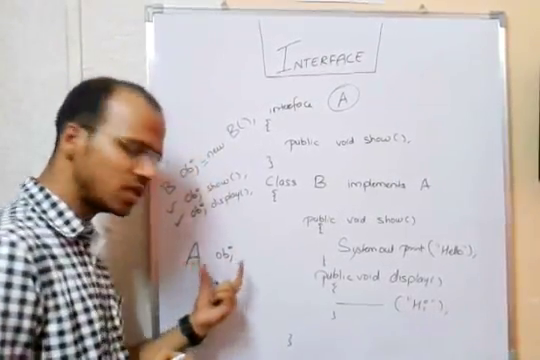 INTERFACE
interface A
{
public void show();
}
Class B implements A
{
public void show()
{
System out print ("Hello");
}
public void display()
{
("Hi");
}
}
B obj = new B();
✓ obj show();
✓ obj display();
A obj